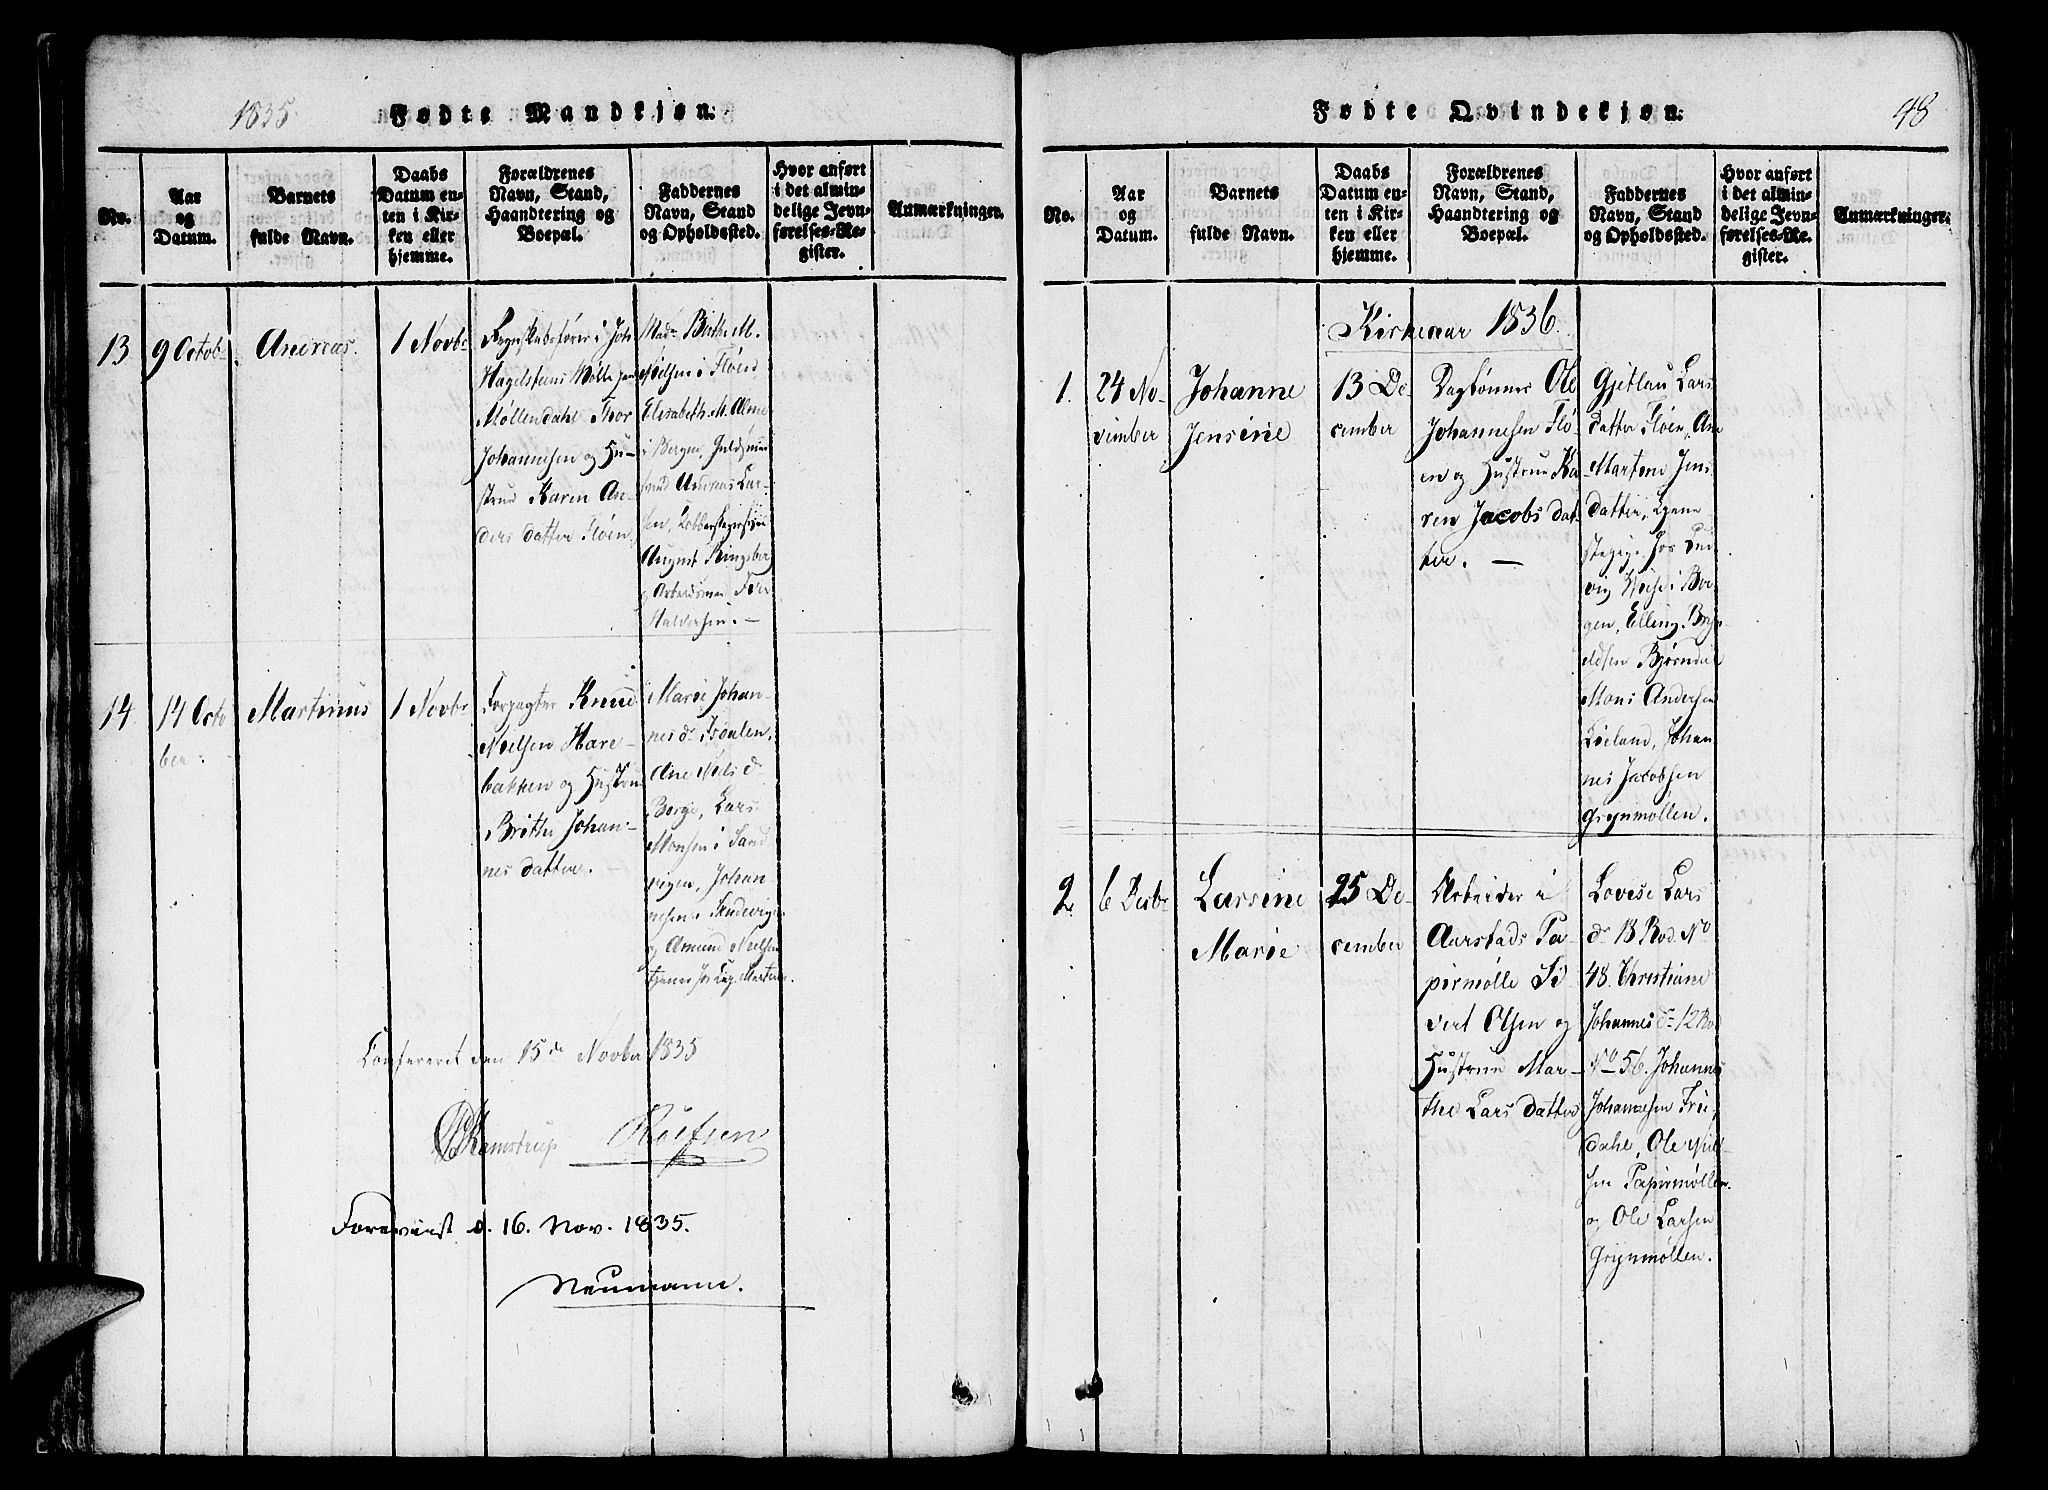 1835
Fødte Mandkjøn.
No.
Aar
og
Datum.
Barnets
fulde Navn.
Daabs
Datum en-
ten i Kir-
ken eller
hjemme.
Forældrenes
Navn, Stand,
Haandtering og
Boepæl.
Faddernes
Navn, Stand
og Opholdssted.
Hvor anført
i det almin-
delige Jevn-
førelses-Re-
gister.
Anmærkninger.
13
9 Octob.
Andreas.
1 Novbr
Regnskabsfører i Joh
Hagelsteens Mølle paa
Møllendahl Thor
Johannesen og Hu-
strue Karen An-
ders datter Fløen.
Mad. Birthe M.
Nielsen i Fløen
Elisabeth M. Alme
i Bergen, Guldsmed
svend Andreas Lar-
sen, Kobberslagersvend
August Ringsber
og Arbeidsmand
Halversen. –
14
14 Octo
ber.
Martinus
1 Novbr
Forpagter Knud
Nielsen Hare-
bakken og Hustrue
Brithe Johan-
nes datter. –
Marie Johan-
nes dr Isdalen,
Ane Niels d
Borge, Lars
Monsen i Sand
vigen, Johan
nesen i Sandvigen
og Amund Nielsen
Confereret den 15de Novbr 1835
Kamstrup
Rolfsen
Foreviist d. 16. Nov. 1835.
Neumann.
Fødte Qvindekjøn.
48
No.
Aar
og
Datum.
Barnets
fulde Navn.
Daabs
Datum en-
ten i Kir-
ken eller
hjemme.
Forældrenes
Navn, Stand,
Haandtering og
Boepæl.
Faddernes
Navn, Stand
og Opholdssted.
Hvor anført
i det almin-
delige Jevn-
førelses-Re-
gister.
Anmærkninger.
Kirkeaar 1836.
1.
24 No-
vember
Johanne
Jensine
13 De-
cember
Daglønner Ole
Johannesen Flø-
en og Hustrue Ka-
ren Jacobs dat-
ter. –
Gjetlau Lars
datter Fløen, Ane
Martene Jens
datter,
Lud
vig Weise i Ber
gen, Elling Bryn
ildsen Bjørndal
Mons Andersen
Løeland, Johan
nes Jacobsen
Grynmøllen.
2
6 Decbr
Larsine
Marie
25 De-
cember
Arbeider i
Aarstads Pa-
pirmølle Si
vert Olsen og
Hustrue Mar-
the Lars datter
Lovise Lars
dr 13 Rod. No
48. Christiane
Johannes dr 12 Rod
No 56. Johannes
Johannesen Frie-
dahl, Ole Niel-
sen Papirmøllen.
og Ole Larsen
Grynmøllen.